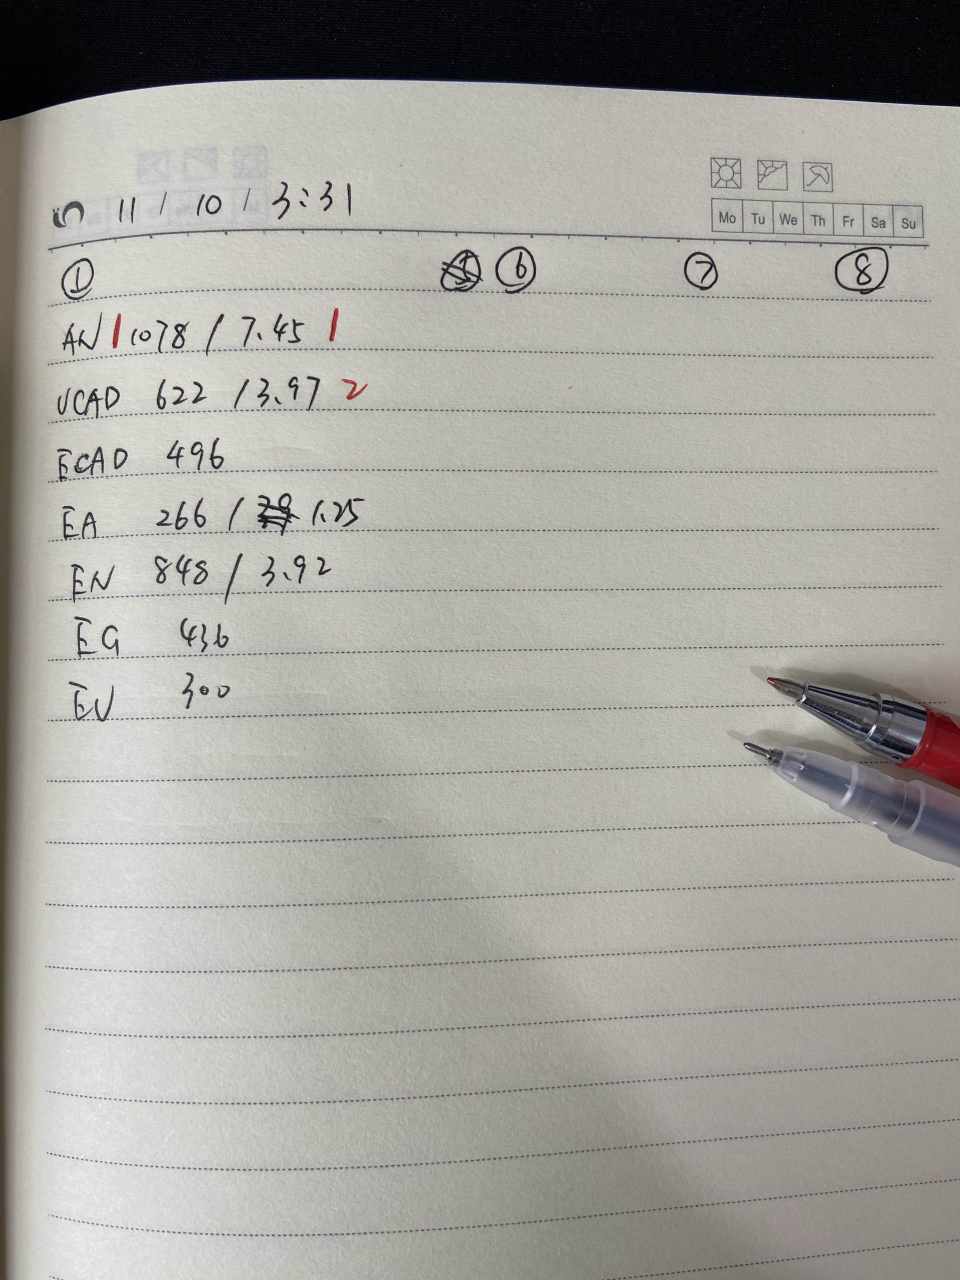 5 11 / 10 / 3:31
Mo Tu We Th Fr Sa Su
① ⑥ ⑦ ⑧
AN | 1078 / 7.45 1
UCAD 622 / 3.97 2
ECAD 496
EA 266 / 1.25
EN 848 / 3.92
EG 436
EU 300